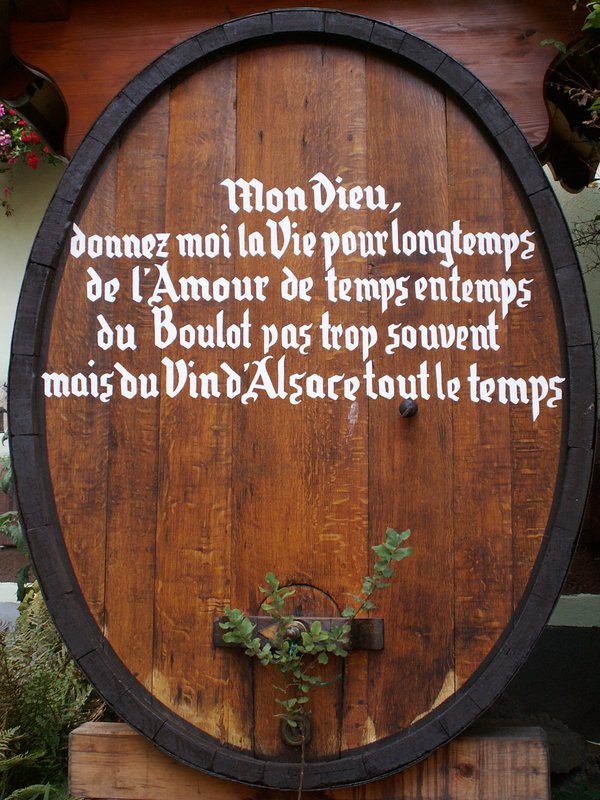 Mon Dieu,
donnez moi la Vie pour longtemps
de l'Amour de temps en temps
du Boulot pas trop souvent
mais du Vin d'Alsace tout le temps